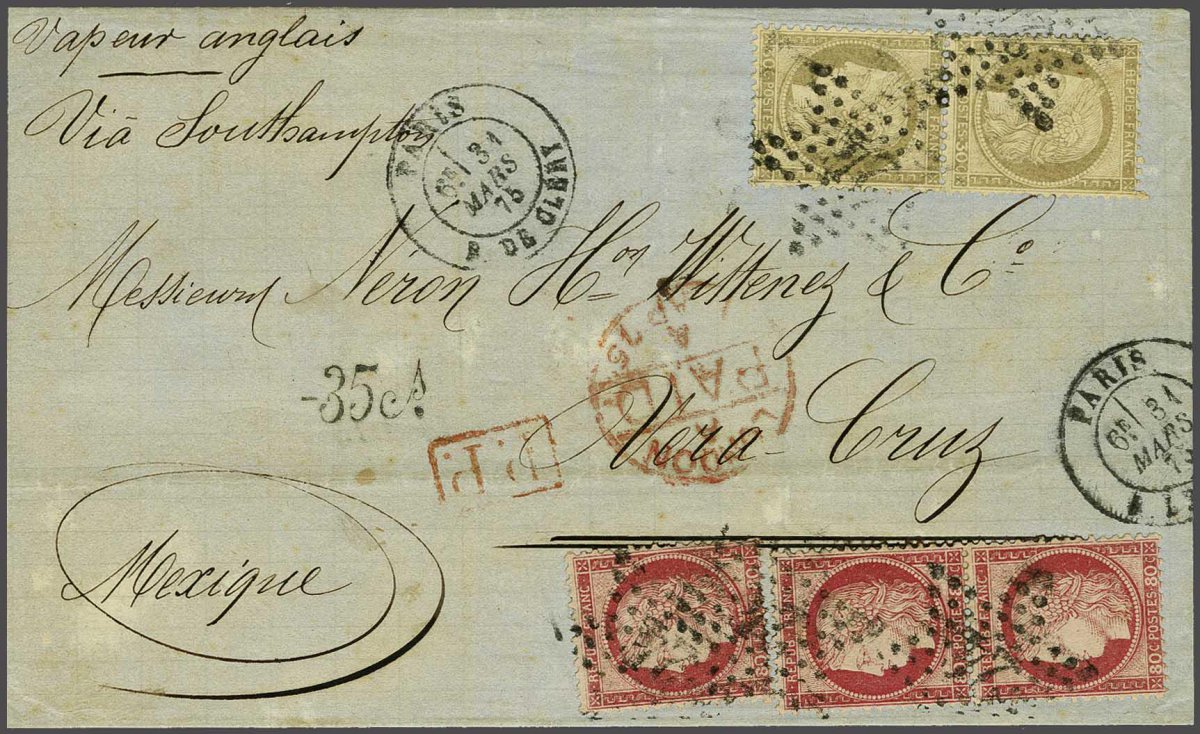 Vapeur anglais
Viâ Southampton
PARIS
6E 31
MARS
75
R. DE CLERY
30C POSTES FRANC
REPUB FRANC POSTES·30C
Messieurs Néron Hos Wittenez & Co
-35cs
PAID
AP 75
P.P.
Vera Cruz
PARIS
6E 31
MARS
Mexique
REPUB FRANC 80C
REPUB FRANC POSTES 80C
REPUB FRANC 80C POSTES·80C